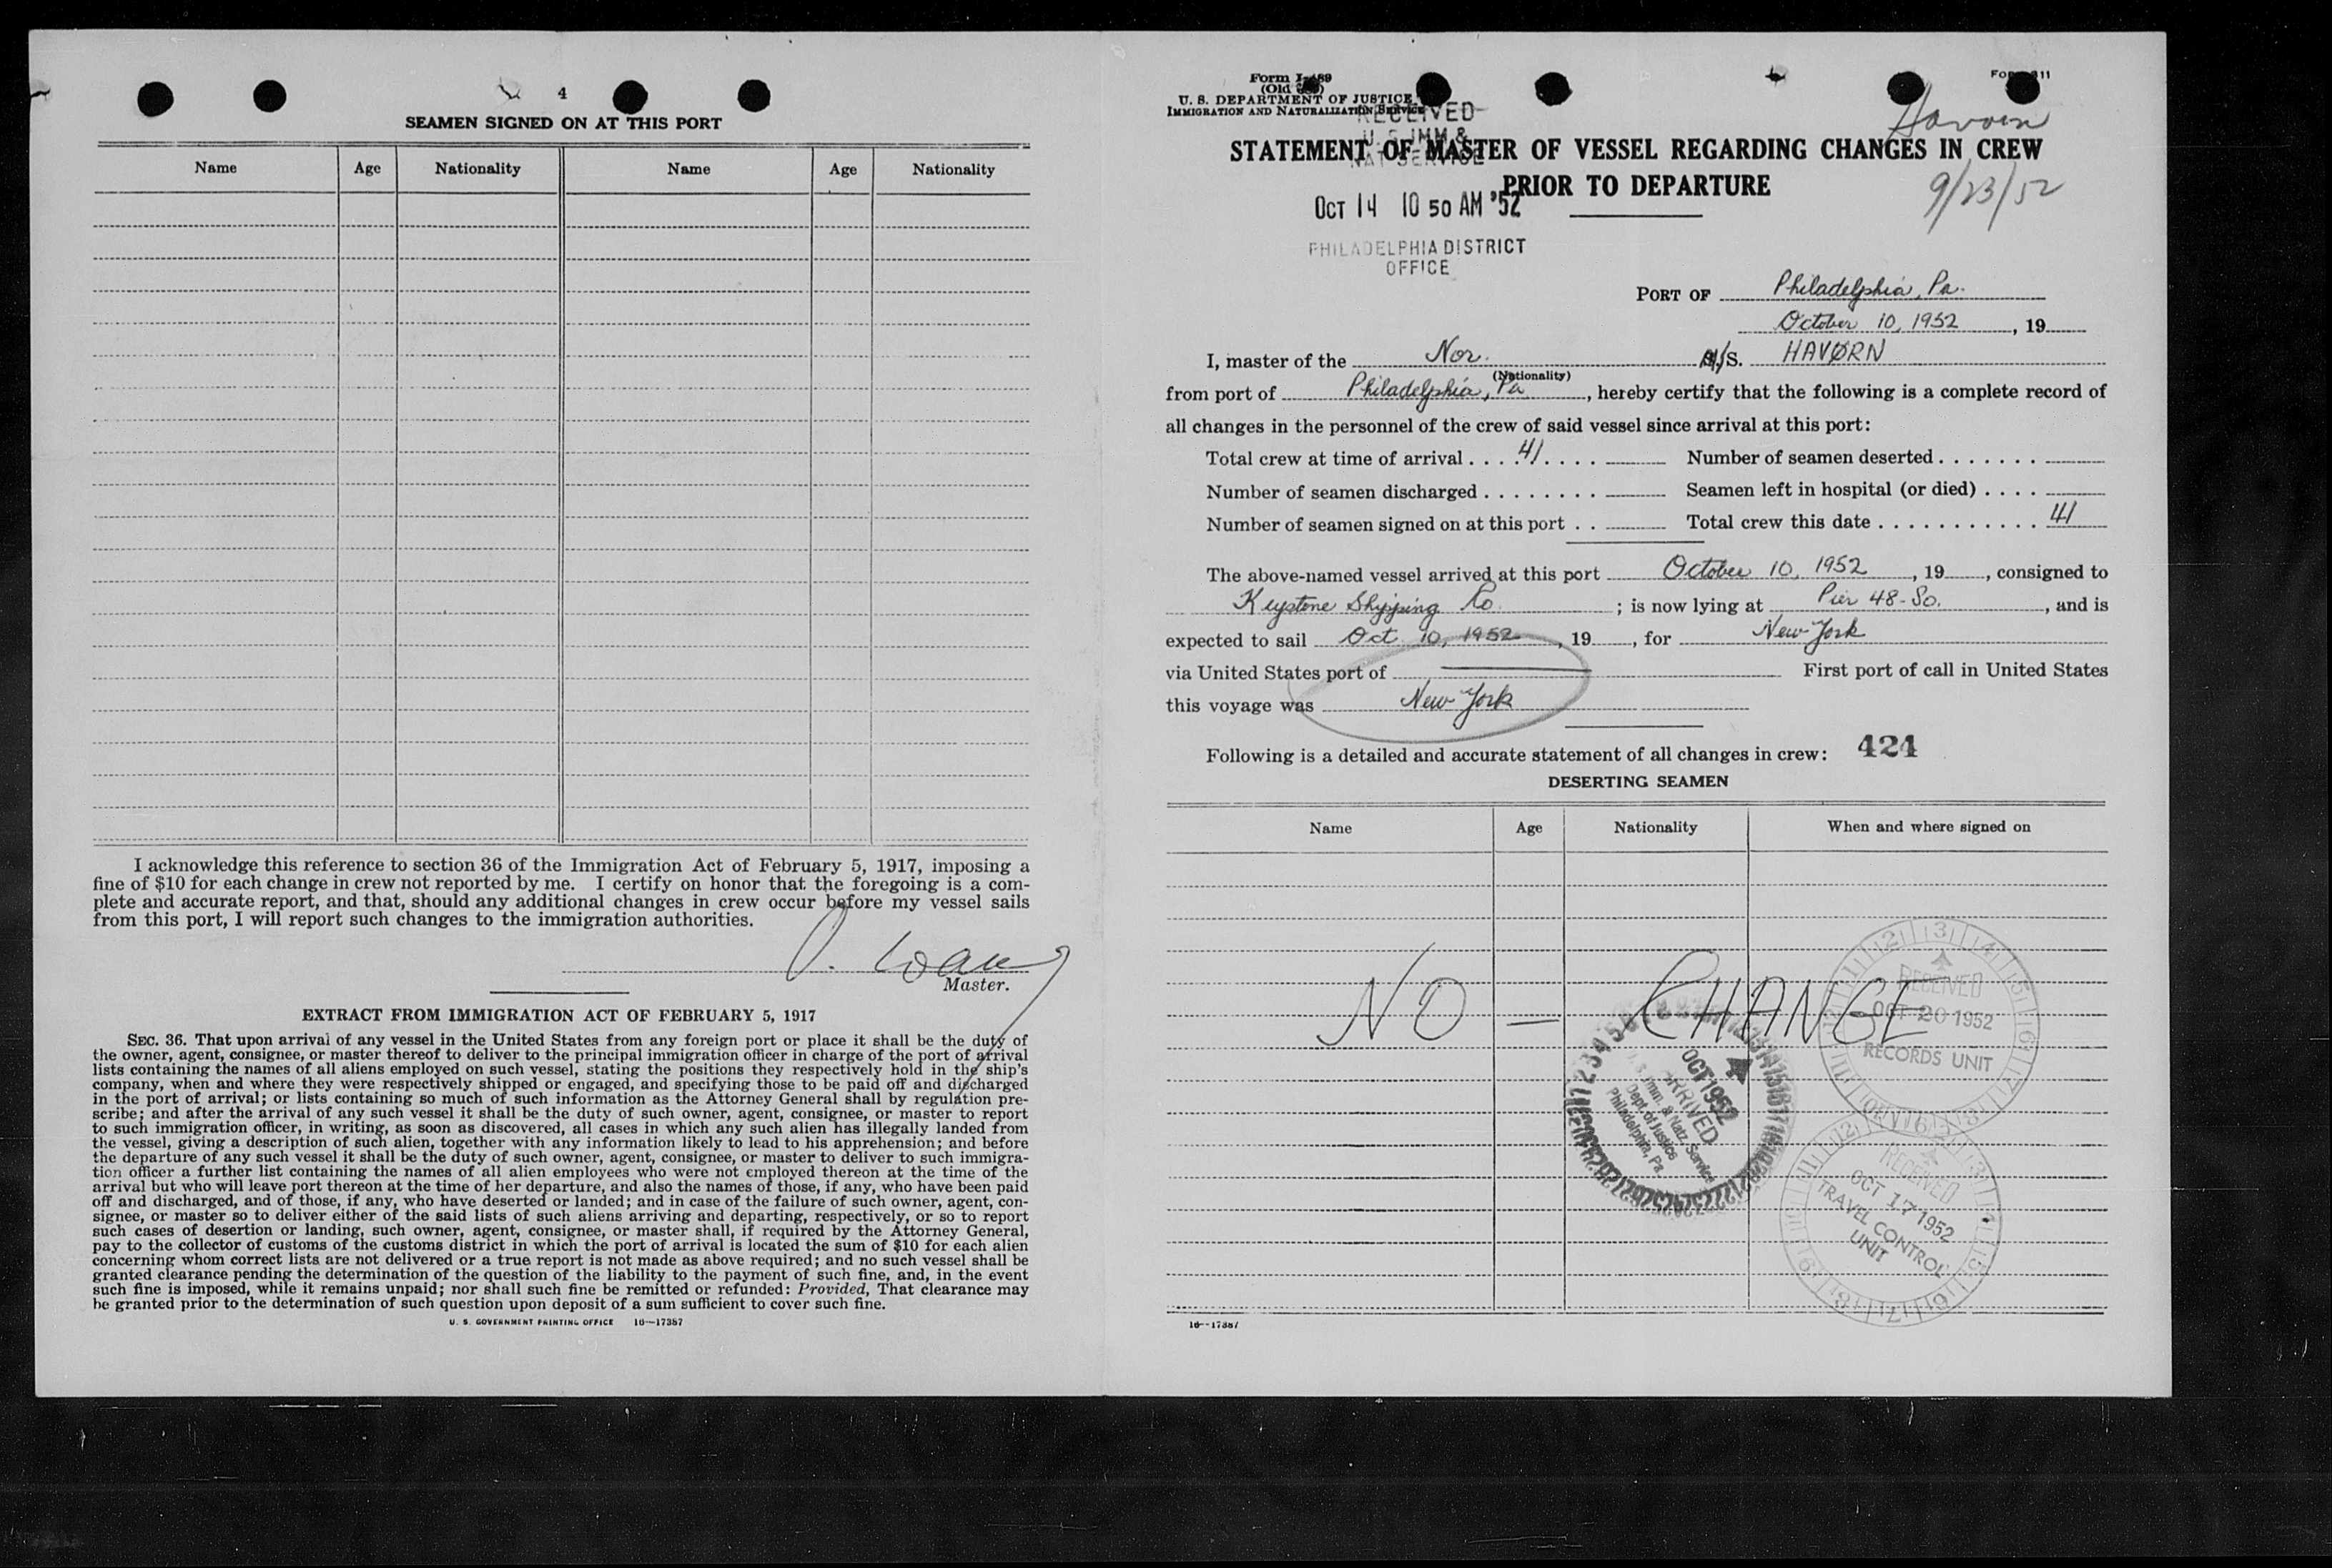 4
SEAMEN SIGNED ON AT THIS PORT
Name Age Nationality Name Age Nationality
I acknowledge this reference to section 36 of the Immigration Act of February 5, 1917, imposing a
fine of $10 for each change in crew not reported by me. I certify on honor that the foregoing is a com-
plete and accurate report, and that, should any additional changes in crew occur before my vessel sails
from this port, I will report such changes to the immigration authorities.
Master.
EXTRACT FROM IMMIGRATION ACT OF FEBRUARY 5, 1917
SEC. 36. That upon arrival of any vessel in the United States from any foreign port or place it shall be the duty of
the owner, agent, consignee, or master thereof to deliver to the principal immigration officer in charge of the port of arrival
lists containing the names of all aliens employed on such vessel, stating the positions they respectively hold in the ship's
company, when and where they were respectively shipped or engaged, and specifying those to be paid off and discharged
in the port of arrival; or lists containing so much of such information as the Attorney General shall by regulation pre-
scribe; and after the arrival of any such vessel it shall be the duty of such owner, agent, consignee, or master to report
to such immigration officer, in writing, as soon as discovered, all cases in which any such alien has illegally landed from
the vessel, giving a description of such alien, together with any information likely to lead to his apprehension; and before
the departure of any such vessel it shall be the duty of such owner, agent, consignee, or master to deliver to such immigra-
tion officer a further list containing the names of all alien employees who were not employed thereon at the time of the
arrival but who will leave port thereon at the time of her departure, and also the names of those, if any, who have been paid
off and discharged, and of those, if any, who have deserted or landed; and in case of the failure of such owner, agent, con-
signee, or master so to deliver either of the said lists of such aliens arriving and departing, respectively, or so to report
such cases of desertion or landing, such owner, agent, consignee, or master shall, if required by the Attorney General,
pay to the collector of customs of the customs district in which the port of arrival is located the sum of $10 for each alien
concerning whom correct lists are not delivered or a true report is not made as above required; and no such vessel shall be
granted clearance pending the determination of the question of the liability to the payment of such fine, and, in the event
such fine is imposed, while it remains unpaid; nor shall such fine be remitted or refunded: Provided, That clearance may
be granted prior to the determination of such question upon deposit of a sum sufficient to cover such fine.
U. S. GOVERNMENT PRINTING OFFICE 16—17387
Form
(Old
U. S. DEPARTMENT OF JUSTICE
IMMIGRATION AND NATURALIZATION SERVICE
RECEIVED
U. S. IMM &
NAT SERVICE
STATEMENT OF MASTER OF VESSEL REGARDING CHANGES IN CREW
PRIOR TO DEPARTURE
9/23/52
OCT 14 10 50 AM '52
PHILADELPHIA DISTRICT
OFFICE
PORT OF Philadelphia, Pa.
October 10, 1952, 19
I, master of the Nor. M/S. HAVØRN
(Nationality)
from port of Philadelphia, Pa, hereby certify that the following is a complete record of
all changes in the personnel of the crew of said vessel since arrival at this port:
Total crew at time of arrival . . . . 41 . . . . Number of seamen deserted . . . . . . .
Number of seamen discharged . . . . . . . . Seamen left in hospital (or died) . . . .
Number of seamen signed on at this port . . Total crew this date . . . . . . . . . . . 41
The above-named vessel arrived at this port October 10, 1952, 19, consigned to
Keystone Shipping Co. ; is now lying at Pier 48-So., and is
expected to sail Oct 10, 1952, 19, for New York
via United States port of First port of call in United States
this voyage was New York
Following is a detailed and accurate statement of all changes in crew: 424
DESERTING SEAMEN
Name Age Nationality When and where signed on
NO — CHANGE
RECEIVED
OCT 20 1952
RECORDS UNIT
OCT 1952
ARRIVED
Imm. & Natz. Service
Dept. of Justice
Philadelphia, Pa.
RECEIVED
OCT 17 1952
TRAVEL CONTROL
UNIT
16—17387